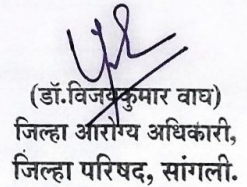 (डॉ.विजयकुमार वाघ)
जिल्हा आरोग्य अधिकारी,
जिल्हा परिषद, सांगली.